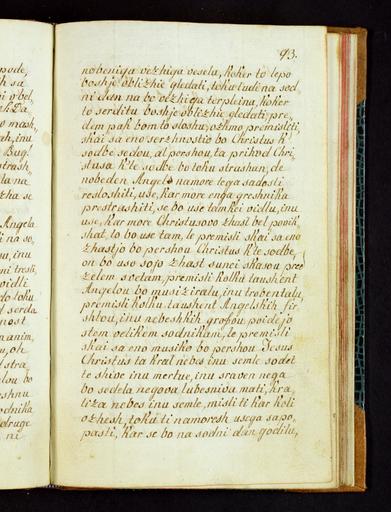 93.
nobeniga vezhiga vesela, koker to lepo
boshje oblizhie gledati, toku tudi na sod,
ni dien na bo vezhiga terpleina, koker
to serditu boshje oblizhie gledati, pre,
den pak bom to sloshu, ozhmo premisleti,
skai sa eno serzhnostio bo Christus k'
sodbe sedou, al pershou, ta prihod Chri,
stusa k'te sodbe bo toku strashan, de
nobeden Angel namore tega sadosti
resloshiti, use, kar more eniga greshnika
prestrashiti, se bo use tamkei vidlu, inu
use, kar more Christusovo zhast bel povik,
shat, to bo use tam, le premisli skai sa eno
zhastjo bo pershou Christus k'te sodbe,
on bo uso sojo zhast sunci skasou pred
zelem svetam, premisli kolku taushent
Angelou bo musiziralu, inu trobentalu,
premisli kolku taushent Angelskih fir,
shtou, inu nebeskih grafou, poide jo
stem velikem sodnikam, le premisli
skai sa eno musiko bo pershou Jesus
Christus ta kral nebes inu semle sodet
te shive inu mertue, inu sraven nega
bo sedela negova lubesniva mati, kra
liza nebes inu semle, misli ti kar koli
ozhesh, toku ti namoresh usega sapo,
pasti, kar se bo na sodni dan godilu,
pode,
Bug!
Angela
tresti,
vidli
toku
serda
nost
manim,
stra
shnu
odnika
druge
ni